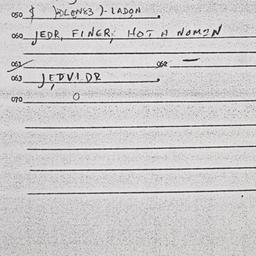 050 { )-LADON
060 JEDR, FINGR; HOT A NOMON
061 062 —
063 JEDVIDR
070 O